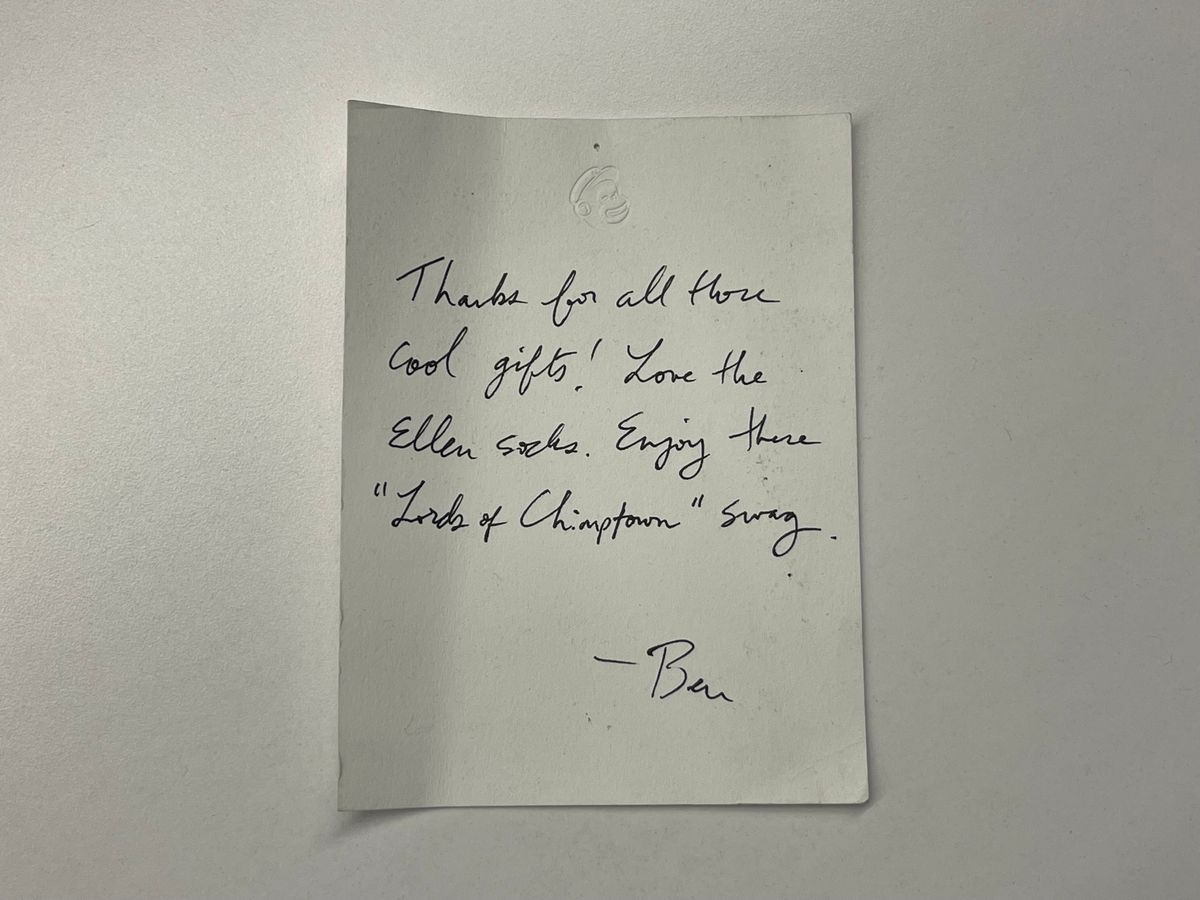 Thanks for all those
cool gifts! Love the
Ellen socks. Enjoy these
"Lords of Chimptown" swag.
— Ben